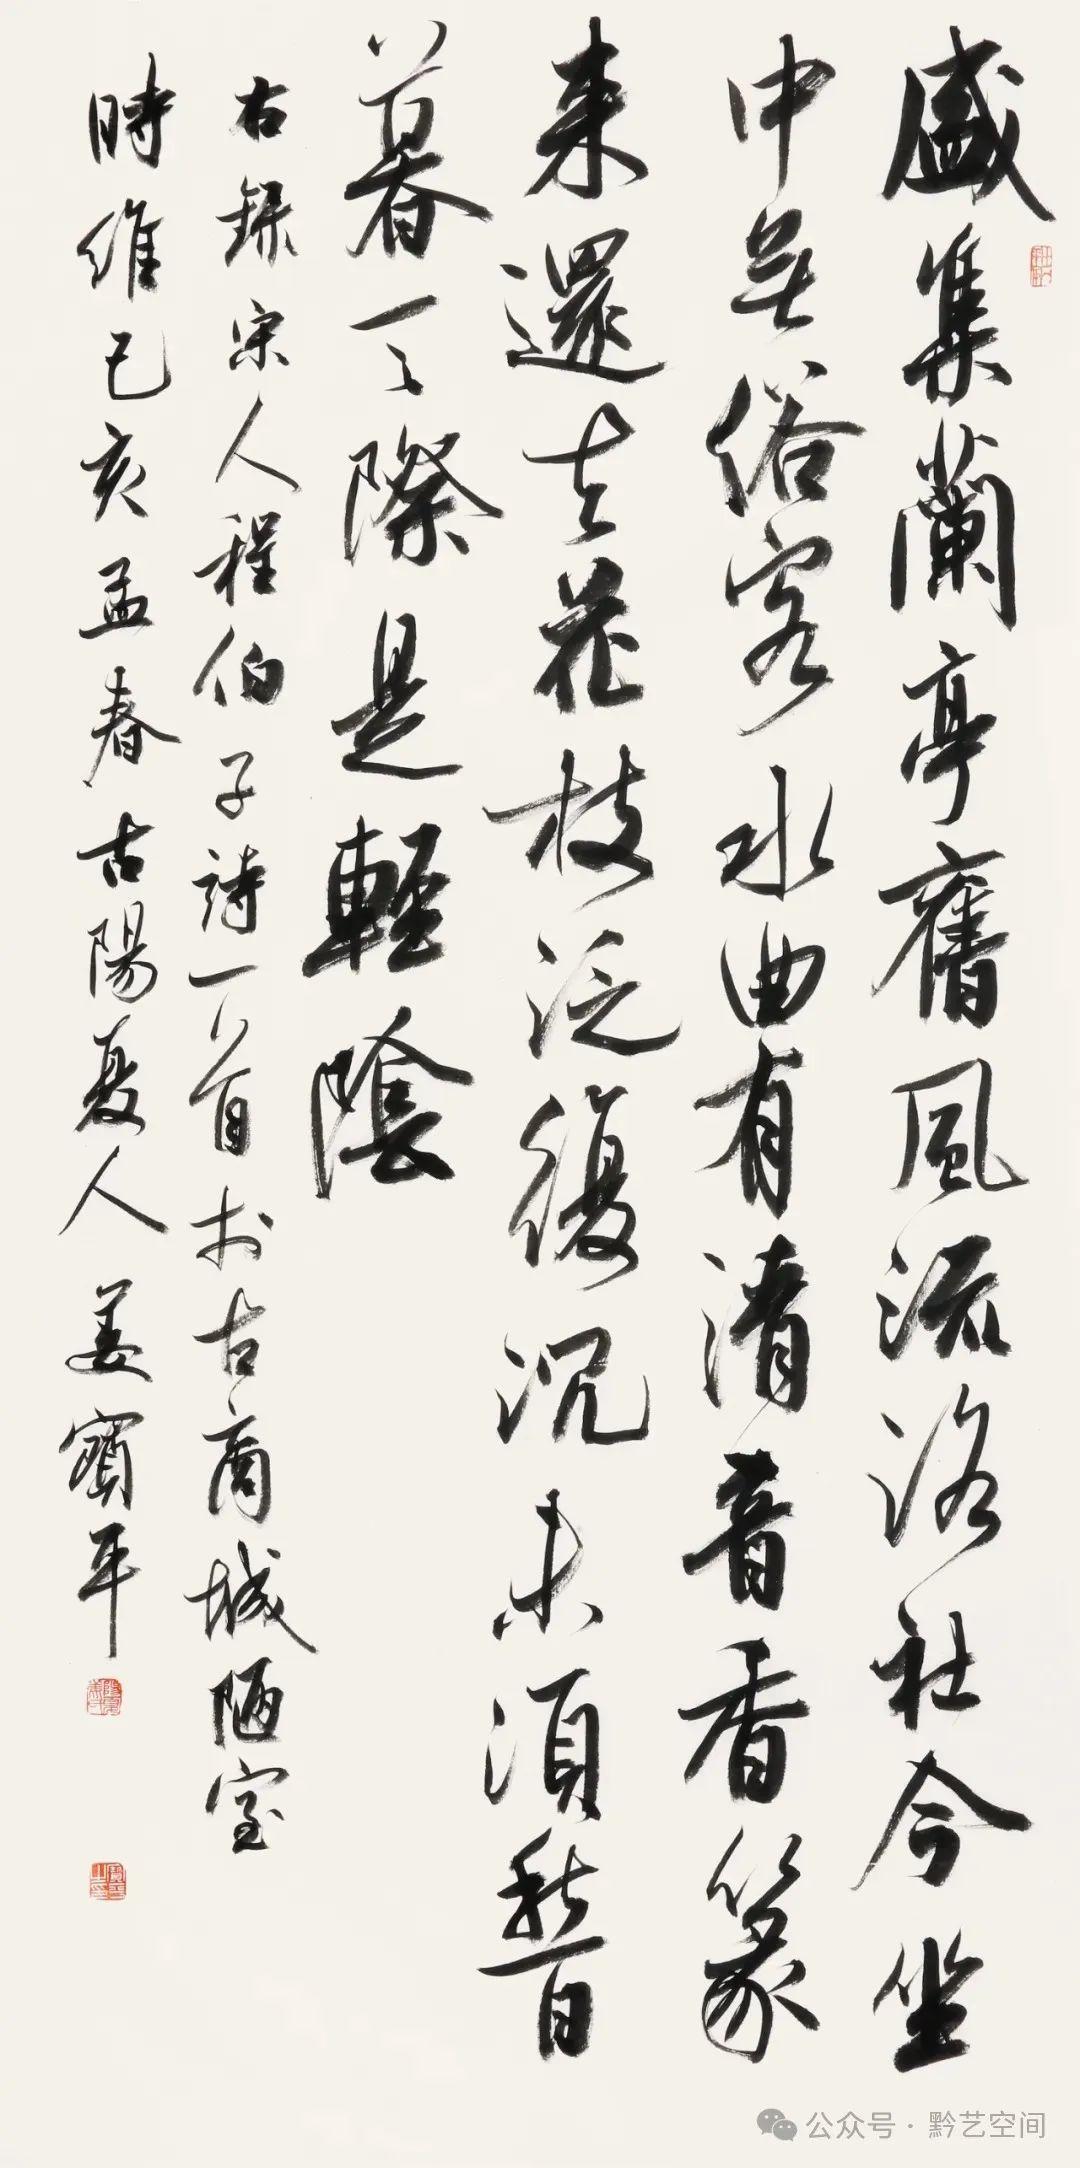 盛集蘭亭舊風流洛社今坐
中無俗客水曲有清音香篆
来還去花枝泛復沉未須愁日
暮天際是輕陰
右録宋人程伯子詩一首於古商城陋室
時維己亥孟春古陽夏人姜寶平
公众号·黔艺空间